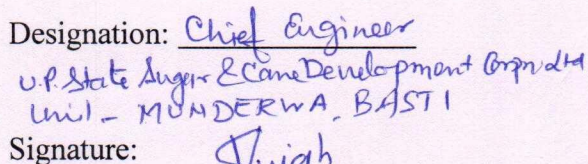 Designation: Chief Engineer
U.P. State Sugar & Cane Development Corpn Ltd
Unit - MUNDERWA, BASTI
Signature: